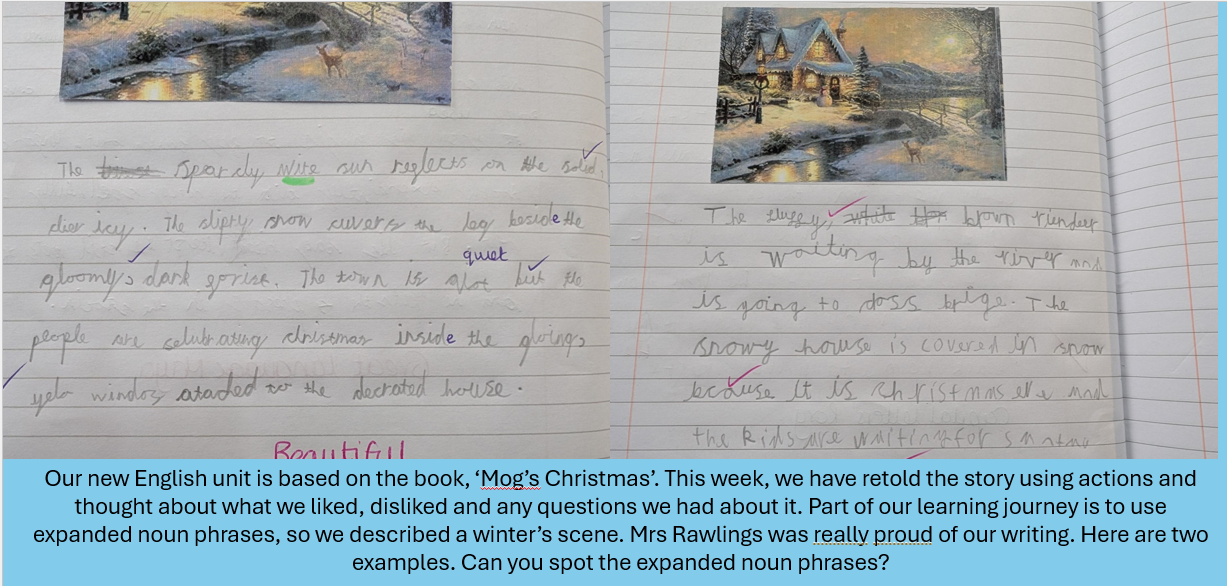 The spardy wite sun reglects on the solid,
dier icy. The slipry snow cuvers the leg beside the
quiet
gloomly, dark gorise. The town is qiot but the
people are celubrating christmas inside the glowing,
yelo window atached to the decrated house.
Beautiful
The fluffy, white brown riendeer
is waiting by the river and
is going to doss brige. The
snowy house is covered in snow
because it is christmas eve and
the kids are waiting for santa
Our new English unit is based on the book, ‘Mog’s Christmas’. This week, we have retold the story using actions and
thought about what we liked, disliked and any questions we had about it. Part of our learning journey is to use
expanded noun phrases, so we described a winter’s scene. Mrs Rawlings was really proud of our writing. Here are two
examples. Can you spot the expanded noun phrases?